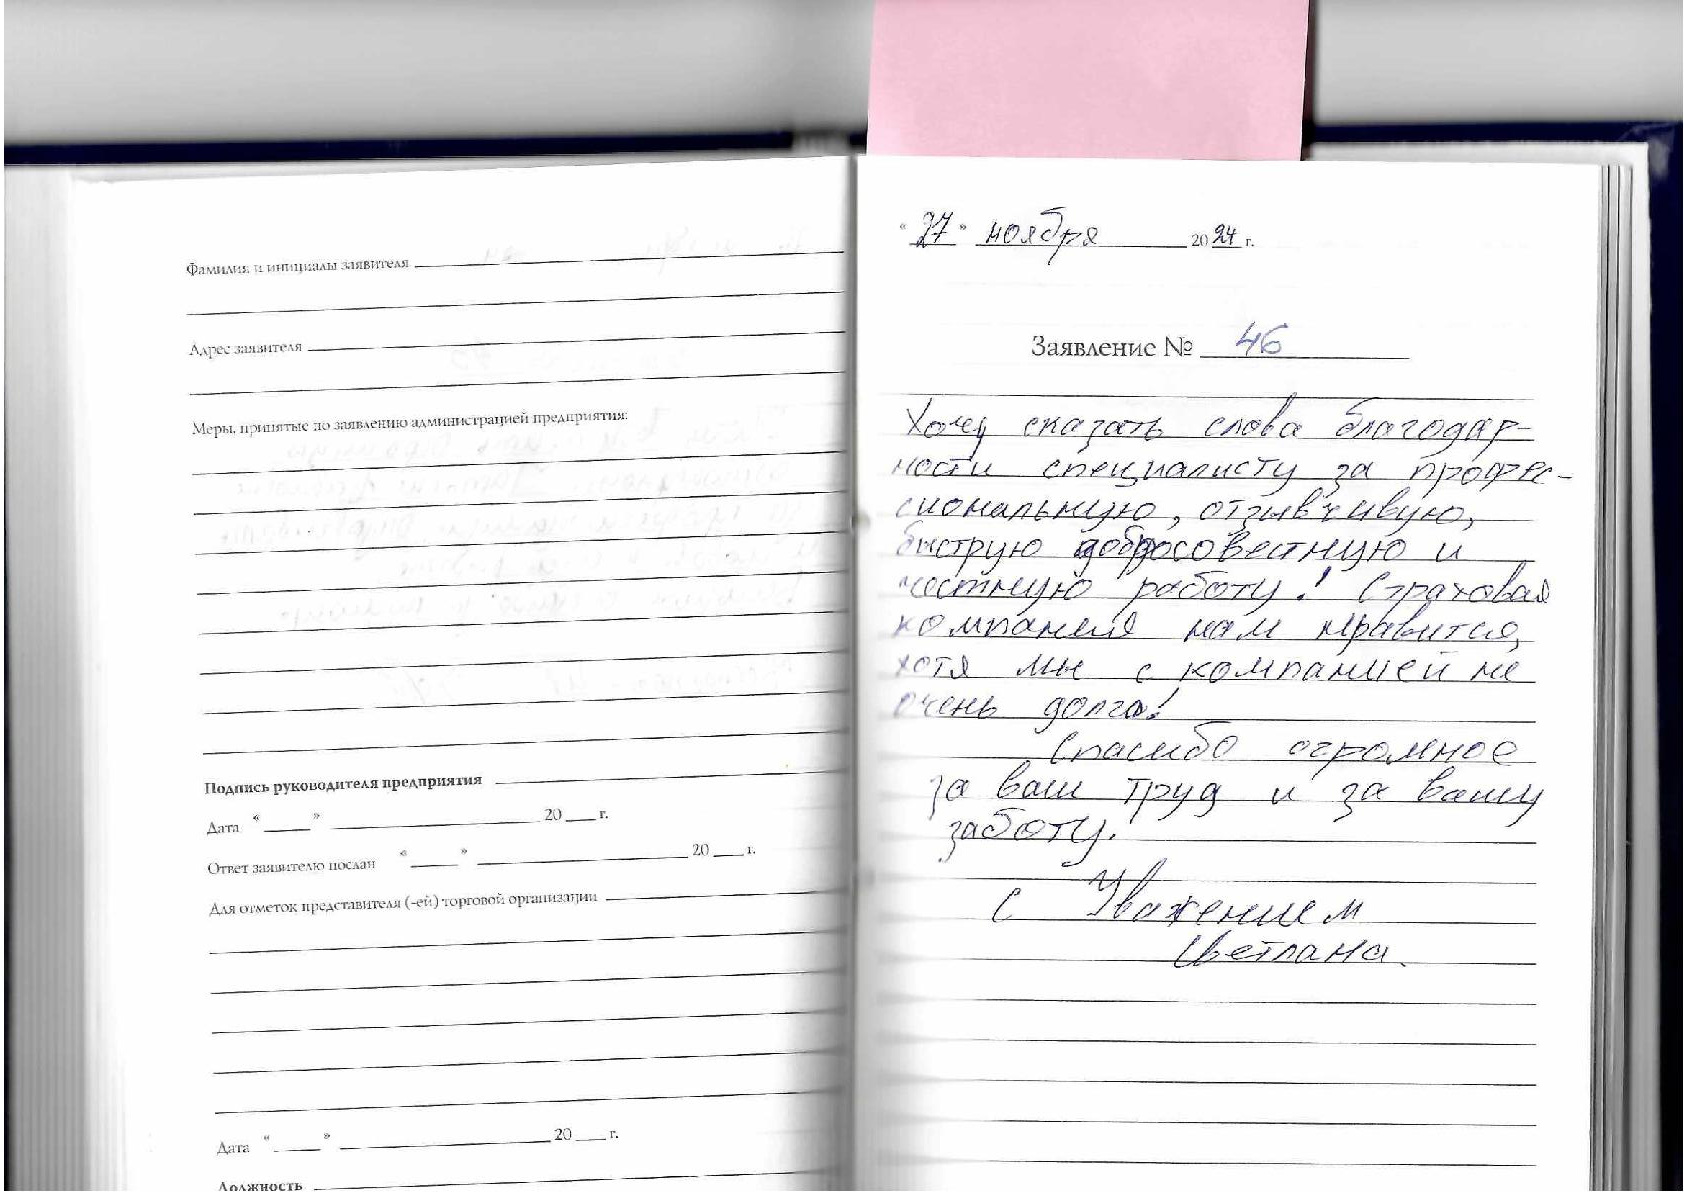 Фамилия и инициалы заявителя
Адрес заявителя
Меры, принятые по заявлению администрацией предприятия:
Подпись руководителя предприятия
Дата “____” ____ 20 ___ г.
Ответ заявителю послан “____” ____ 20 ___ г.
Для отметок представителя (-ей) торговой организации
Дата “____” ____ 20 ___ г.
Должность
“27” ноября 2024 г.
Заявление № 46
Хочу сказать слова благодар-
ности специалисту за профес-
сиональную, отзывчивую,
быструю добросовестную и
честную работу! Страховая
компания нам нравится,
хотя мы с компанией не
очень долго!
Спасибо огромное
за ваш труд и за вашу
заботу.
с Уважением
Светлана.